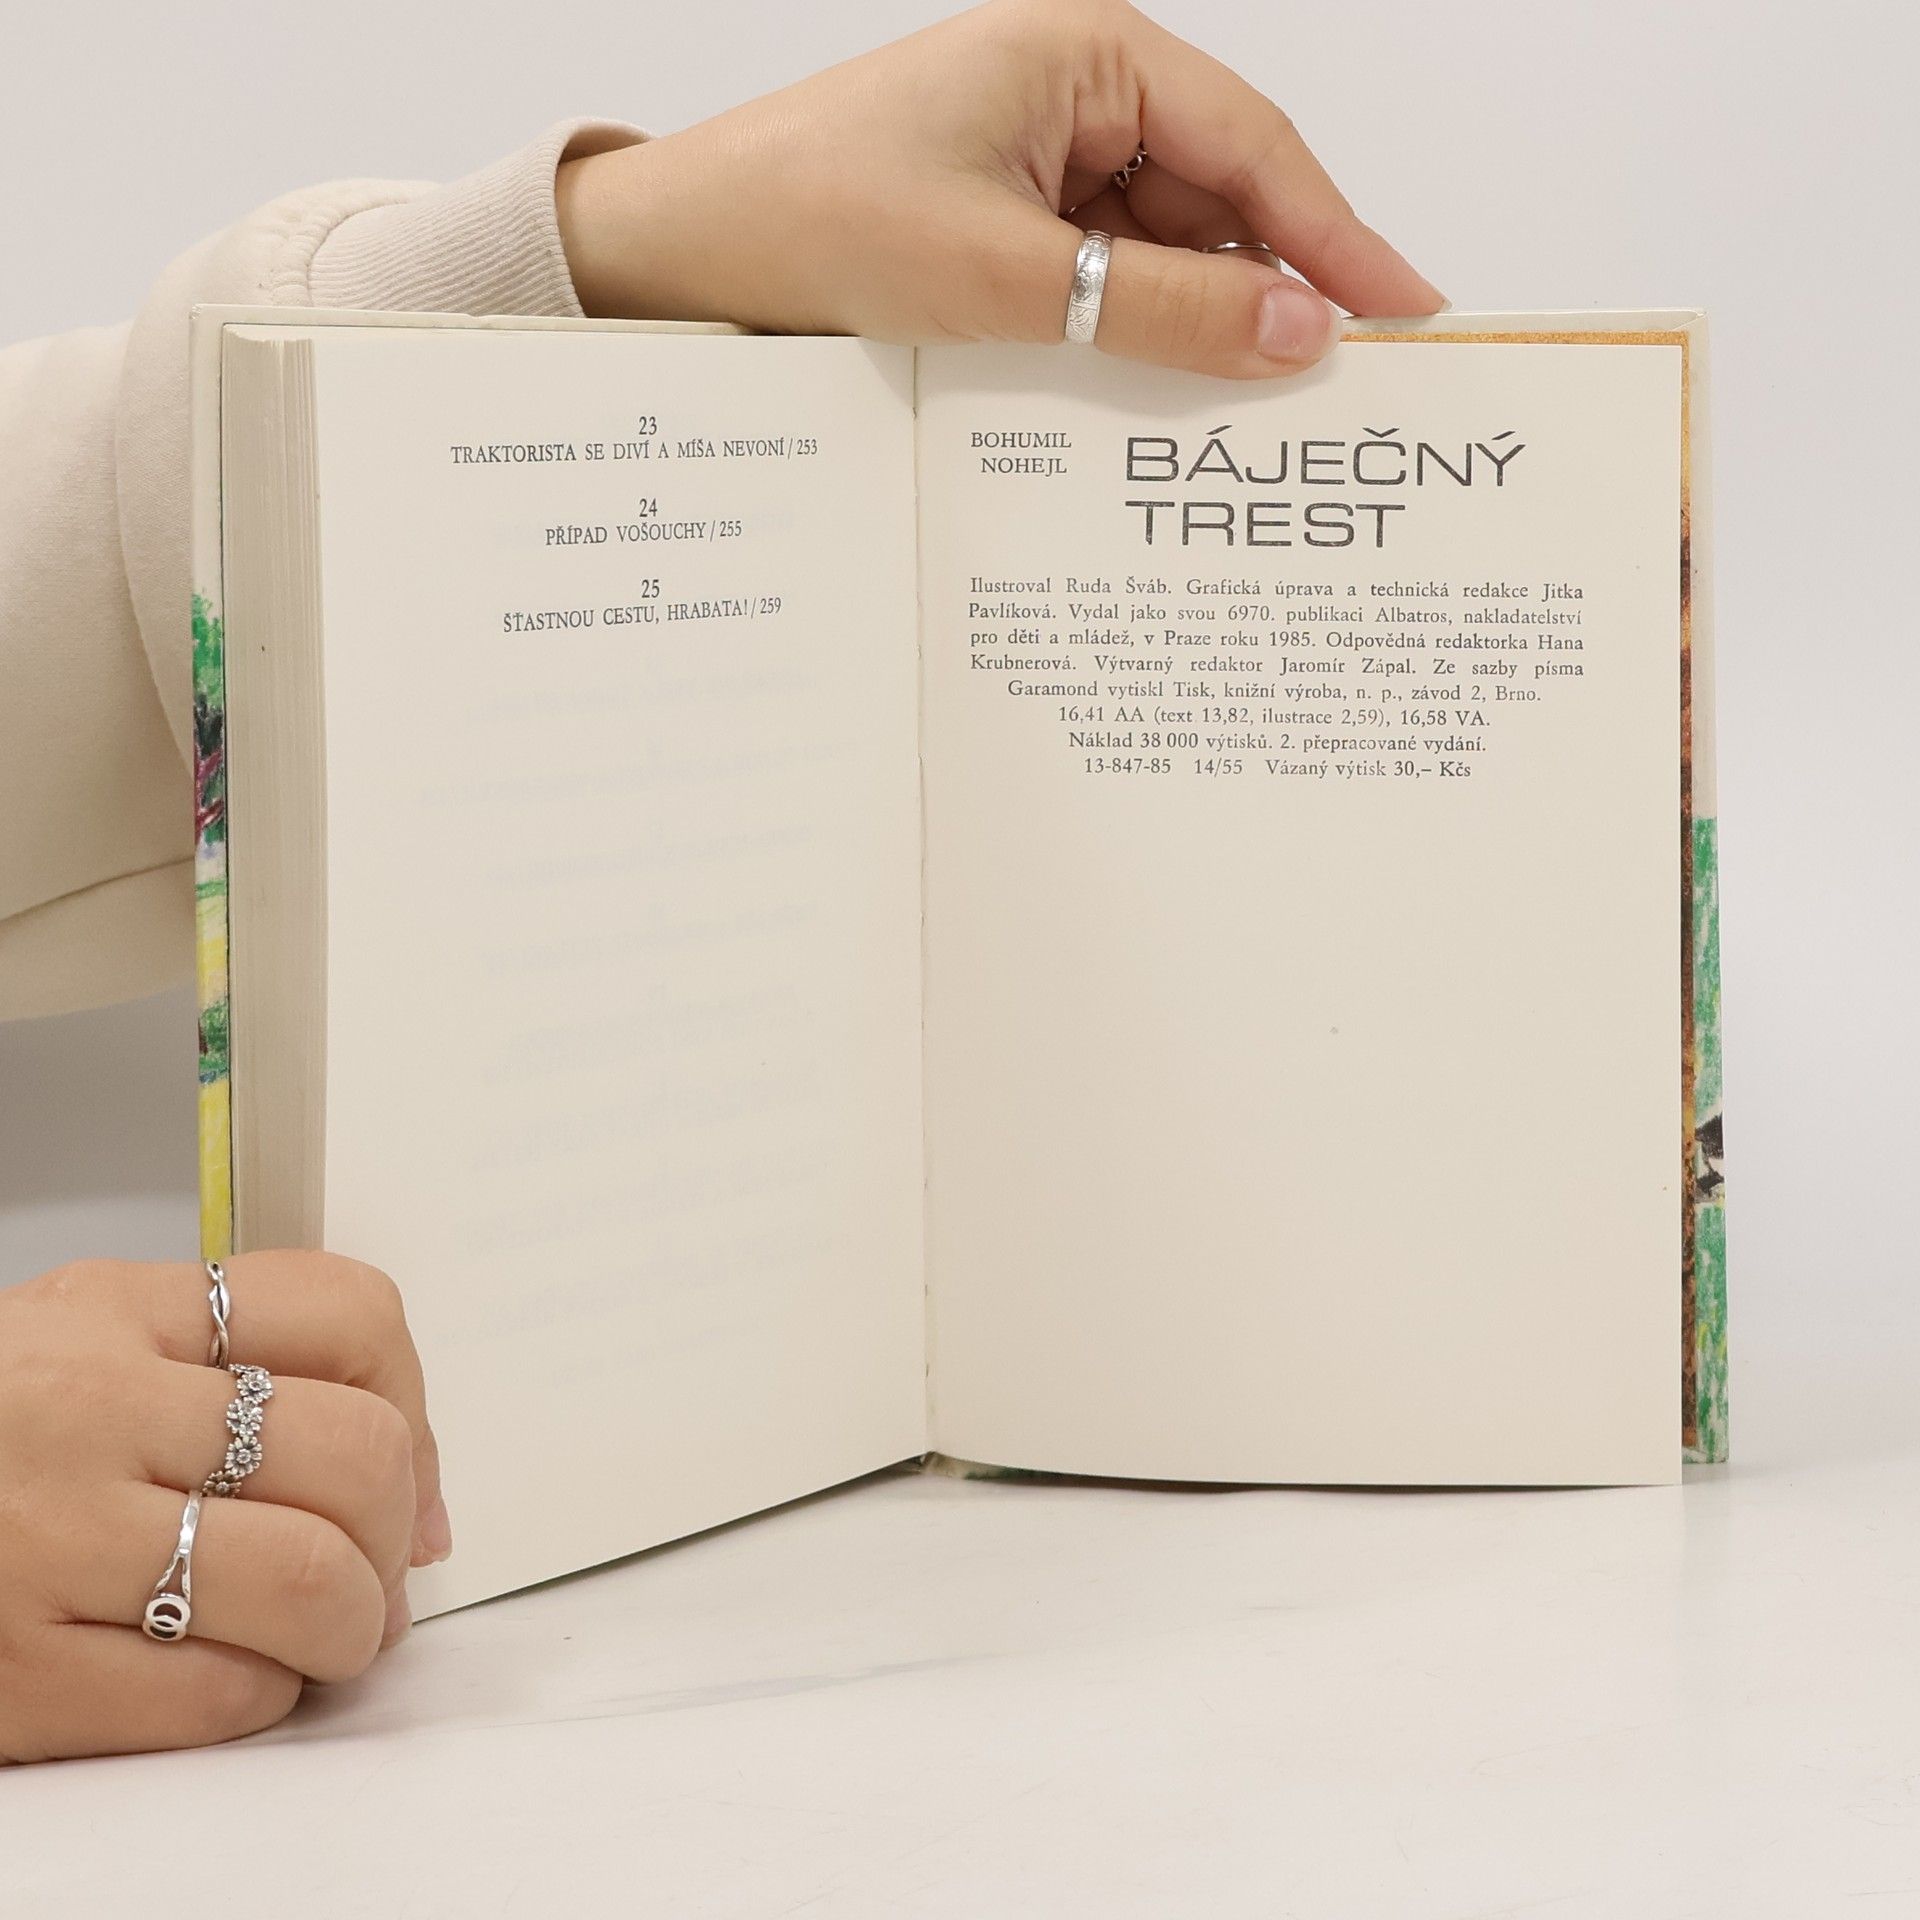 23
TRAKTORISTA SE DIVÍ A MÍŠA NEVONÍ/253
24
PŘÍPAD VOŠOUCHY/255
25
ŠŤASTNOU CESTU, HRABATA!/259
BOHUMIL
NOHEJL
BÁJEČNÝ
TREST
Ilustroval Ruda Šváb. Grafická úprava a technická redakce Jitka
Pavlíková. Vydal jako svou 6970. publikaci Albatros, nakladatelství
pro děti a mládež, v Praze roku 1985. Odpovědná redaktorka Hana
Krubnerová. Výtvarný redaktor Jaromír Zápal. Ze sazby písma
Garamond vytiskl Tisk, knižní výroba, n. p., závod 2, Brno.
16,41 AA (text 13,82, ilustrace 2,59), 16,58 VA.
Náklad 38 000 výtisků. 2. přepracované vydání.
13-847-85 14/55 Vázaný výtisk 30,– Kčs